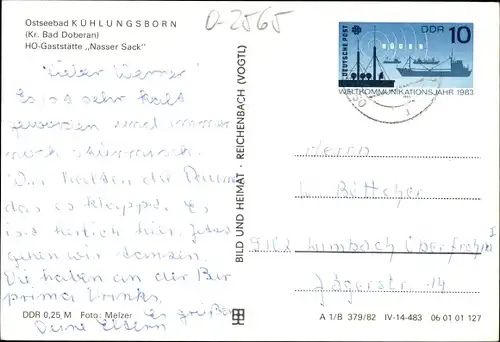 Ostseebad KÜHLUNGSBORN
(Kr. Bad Doberan)
HO-Gaststätte „Nasser Sack"
0-2565
Lieber Werner!
Es ist sehr kalt
geworden und immer
noch stürmisch.
Wir halten die Daumen
das es klappt. Es
ist herrlich hier. Jetzt
gehen wir tanzen.
Die haben an der Bar
prima Drinks.
Es grüßen
Deine Eltern
DDR 0,25 M Foto: Melzer
BILD UND HEIMAT · REICHENBACH (VOGTL)
DEUTSCHE POST
DDR 10
WELTKOMMUNIKATIONSJAHR 1983
Herrn
Böttcher
9102 Limbach Oberfrohna I
Jägerstr. 14
A 1/B 379/82 IV-14-483 06 01 01 127